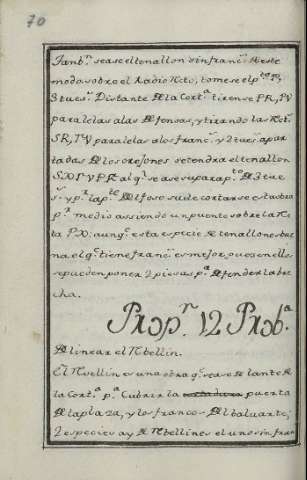 70
Tanbn. se ase el tenallon sin francs. de este
modo sobre el Radio Recto, tomese el pto. P,
3 tues. Distante de la Corta. tirense PR, PV
paralelas a las defensas, y tirando las Rets.
SR, TV paralelas a los francs. y 2 tues. apar
tadas de los orejones se tendra el tenallon
SXTVPR al qe. se ase su parapto. de 3 tue
s. y pr. la pte. del foso suele cortarse esta obra
pr. medio assiendo un puente sobre la Re
ta PX. aunqe. esta especie de tenallones bue
na el qe. tiene francs. es mejor, pues en elle
se pueden poner 2 piesas pa. defender la bre
cha.
Propn. 12 Proba.
Delinear el Rebellin.
El Rvellin es una obra qe. se ase delante de
la Corta. pa. Cubrir la puerta
de la plaza, y los francos del baluarte;
2 especies ay de Rebellines el uno sin fran